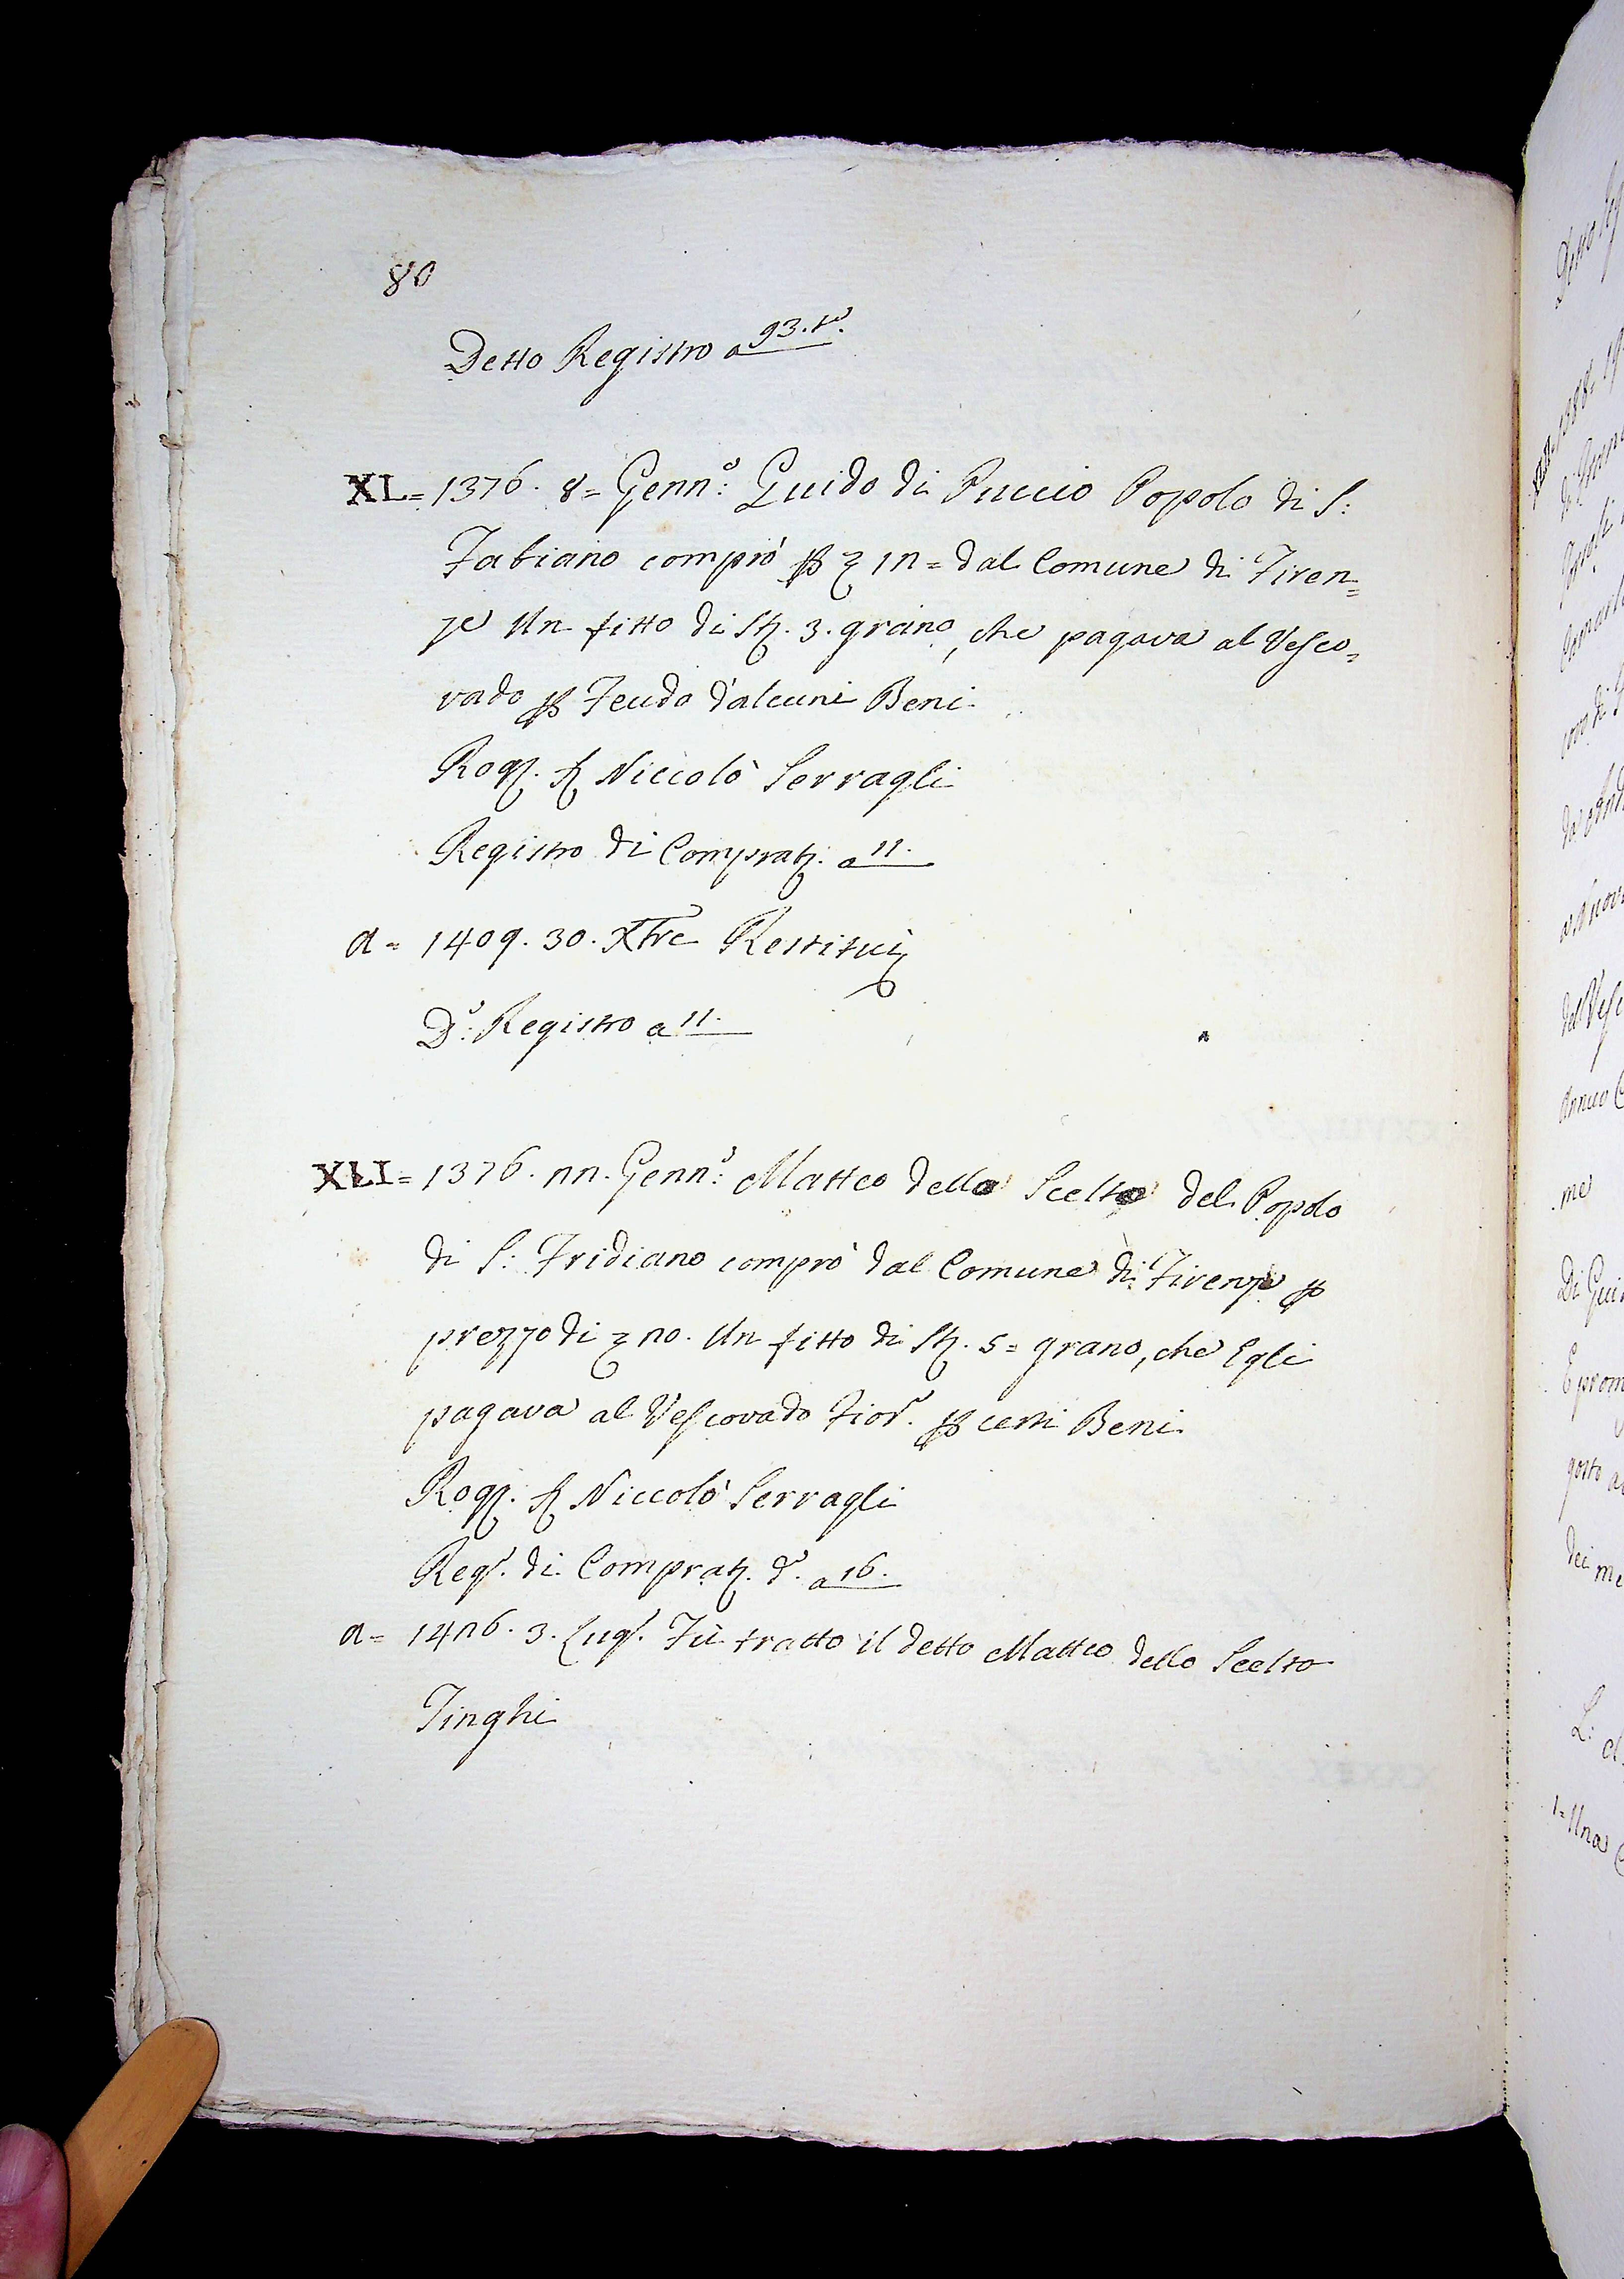 80
Detto Registro a 93. tº.
XL = 1376. 8 = Gennº: Guido di Puccio Popolo di S:
Fabiano comprò p 12 = dal Comune di Firen=
ze Un fitto di St. 3. grano, che pagava al Vesco=
vado p Feudo d'alcuni Beni
Rog. S. Niccolò Serragli
Registro di Comprat. a 11.
a = 1409. 30. Xbre Restituì
Dº: Registro a 11.
XLI = 1376. 22. Gennº: Matteo dello Scelto del Popolo
di S: Fridiano comprò dal Comune di Firenze p
prezzo di 20. Un fitto di St. 5 = grano, che Egli
pagava al Vescovado Fior. p certi Beni
Rog. S. Niccolò Serragli
Reg. di Comprat. dº. a 16.
a = 1426. 3. Lug. Fù tratto il detto Matteo dello Scelto
Tinghi